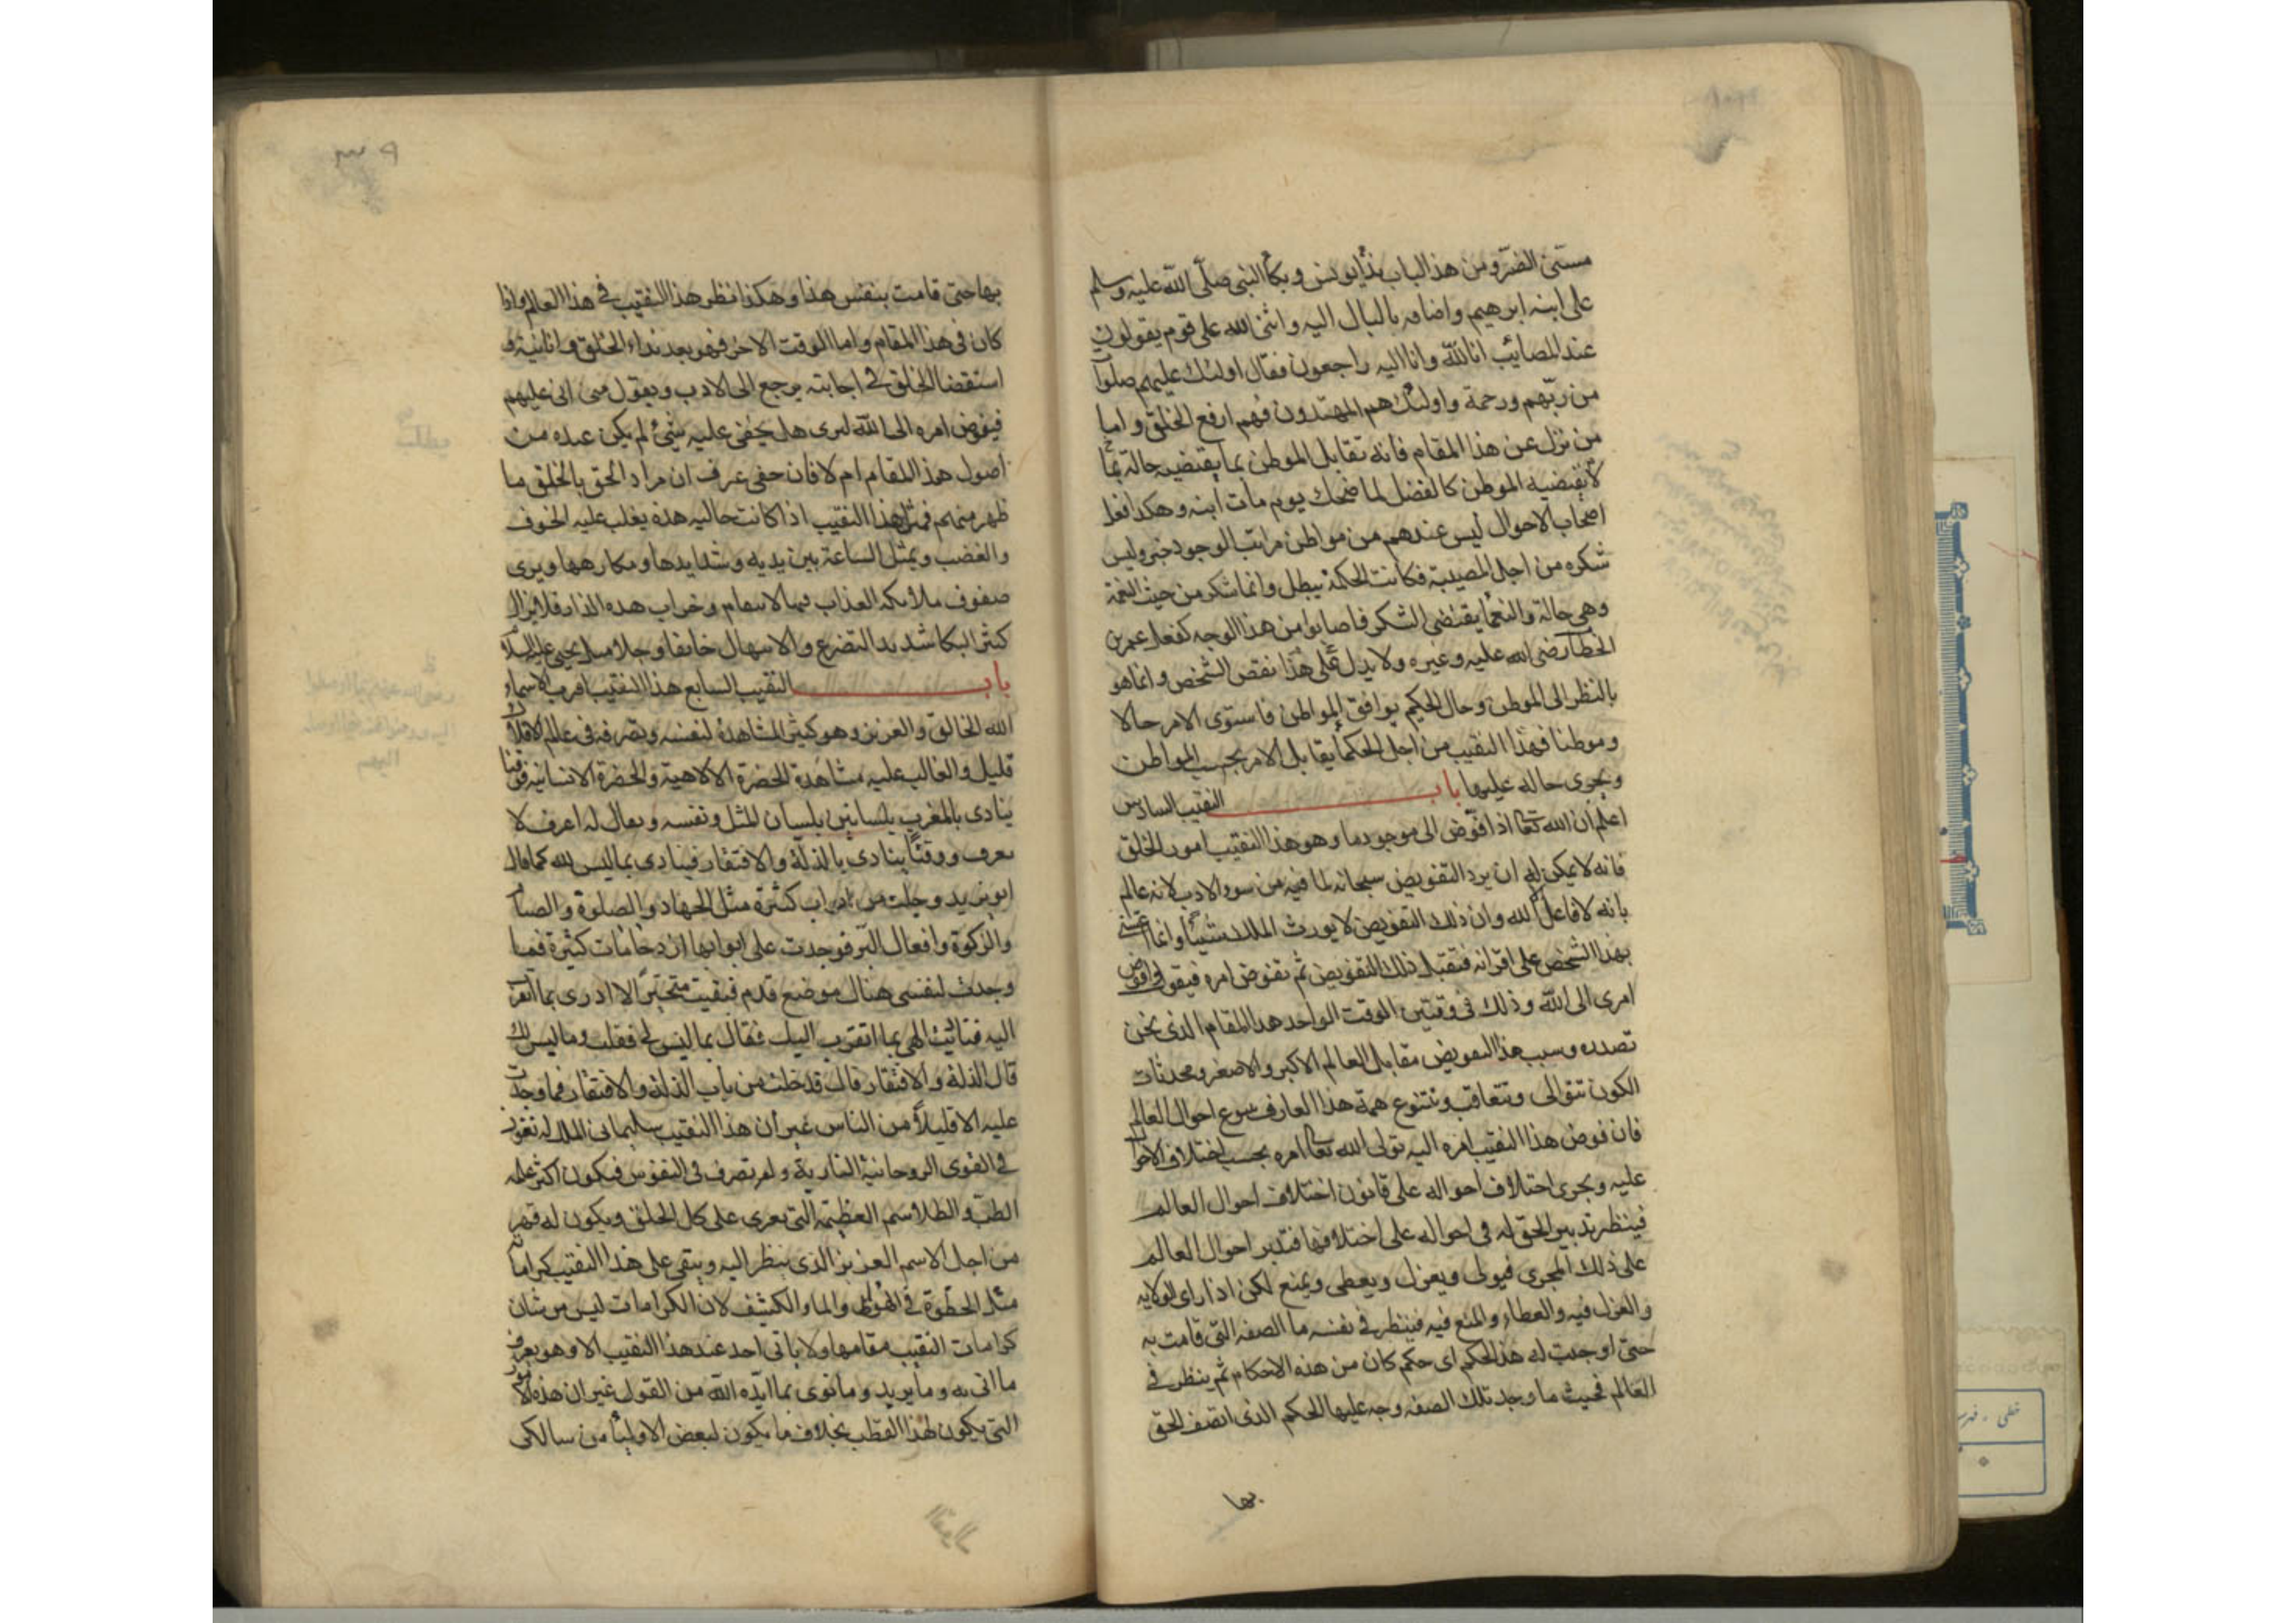 مستى الضر ومن هذا الباب نداء يونس وبكاء النبي صلّى الله عليه وسلم
على ابنه ابرهيم واضافه بالبال اليه واثنى الله على قوم يقولون
عند المصائب انا لله وانا اليه راجعون فقال اولئك عليهم صلوات
من ربّهم ورحمة واولئك هم المهتدون فهم ارفع الخلق واما
من نزل عن هذا المقام فانه تقابل الموطن بما يقتضيه حالة بما
لا يقتضيه الموطن كالفضل لما ضحك يوم مات ابنه وهكذا فعل
اصحاب الاحوال ليس عندهم من مواطن مراتب الوجود خبر وليس
شكره من اجل المصيبة فكانت الحكمة تبطل وانما شكر من حيث النعمة
وهي حالة والنعما يقتضى الشكر فاصابوا من هذا الوجه كفعل عمر بن
الخطاب رضى الله عليه وغيره ولا يدل على هذا نقص الشخص وانما هو
بالنظر الى الموطن وحال الحكيم يوافق المواطن فاستوى الامر حالا
وموطنا فهذا النقيب من اجل الحكما يقابل الامر بحسب المواطن
ويجرى حاله عليها باب النقيب السادس
اعلم ان الله تعا اذا فوّض الى موجود ما وهو هذا النقيب امور الخلق
فانه لا يمكن له ان يرد التفويض سبحانه لما فيه من سوء الادب لانه عالم
بانه لا فاعل الا لله وان ذلك التفويض لا يورث الملك شيئا وانما اعتنى
بهذا الشخص على اقرانه فتقبل ذلك التفويض ثم تفوض امره فيقول افوض
امرى الى الله وذلك فى وقتين الوقت الواحد هذا المقام الذى نحن
بصدده وسبب هذا التفويض مقابل العالم الاكبر والاصغر ومحدثات
الكون تتوالى وتتعاقب وتتنوع همة هذا العارف بتنوع احوال العالم
فان فوض هذا النقيب امره اليه تولى الله تعا امره بحسب اختلاف الاحوال
عليه ويجرى اختلاف احواله على قانون اختلاف احوال العالم
فينظر تدبير الحق له فى احواله على اختلافها فتدبر احوال العالم
على ذلك المجرى فيولى ويعزل ويعطى ويمنع لكن اذا راى الولايه
والعزل فيه والعطاء والمنع فيه فينظر فى نفسه ما الصفه التى قامت به
حتى اوجدت له هذا الحكم اى حكم كان من هذه الاحكام ثم ينظر فى
العالم فحيث ما وجد تلك الصفه وجه عليها الحكم الذى اتصف الحق
بها
بها حتى قامت بنفس هذا وهكذا نظر هذا النقيب فى هذا العالم واذا
كان فى هذا المقام واما الوقت الاخر فهو بعد نداء الخلق
استقضا الخلق فى اجابته يرجع الى الادب ويقول
فيفوض امره الى الله ليرى هل يخفى عليه شئ لم يكن عنده من
اصول هذا المقام ام لا فان خفى عرف ان مراد الحق بالخلق ما
ظهر منهم فمثل هذا النقيب اذا كانت حاليه هذه يغلب عليه الخوف
والغضب ويمثل الساعة بين يديه وشدايدها ومكارهها ويرى
صفوف ملائكة العذاب وخراب هذه الدار فلا يزال
كثير البكا شديد التضرع والابتهال خايفا وجلا مثل يحيى عليه السلام
باب النقيب السابع هذا النقيب اقرب الاسماء
الله الخالق والعزيز وهو كثير المشاهدة لنفسه وتصرفه فى عالم الافلاك
قليل والغالب عليه مشاهدة الحضرة الالاهية والحضرة الانسانية فوقتا
ينادى بالمغرب بلسانين بلسان المثل ونفسه ويقال له اعرف لا
تعرف ووقتا ينادى بالذلّة والافتقار فينادى بما ليس لله كما قال
ابو يزيد وجلت من ابواب كثرة مثل الجهاد والصلوة والصيام
والزكوة وافعال البّر فوجدت على ابوابها ازدحامات كثيرة فما
وجدت لنفسى هناك موضع قدم فبقيت متحيرا لا ادرى بما اتقرب
اليه فناديت الهى بما اتقرب اليك فقال بما ليس لى فقلت وما ليس لك
قال الذلة والافتقار قال قد خلت من باب الذلة والافتقار فما وجدت
عليه الا قليلاً من الناس غير ان هذا النقيب سليمانى الملك له نفوذ
فى القوى الروحانية النارية وله تصرف فى النفوس فيكون اكثر علمه
الطب والطلاسم العظيمة التى تجرى على كل الخلق ويكون له قهر
من اجل الاسم العزيز الذى ينظر اليه ويبقى على هذا النقيب كرامات
مثل الخطوة فى الهوا والماء والكشف لان الكرامات ليس من شان
كرامات النقيب مقامها ولا ياتى احد عند هذا النقيب الا وهو يعرف
ما اتى به وما يريد وما نوى بما ايّده الله من القول غير ان هذه الامور
التى يكون لهذا القطب بخلاف ما يكون لبعض الاوليا من سالكى